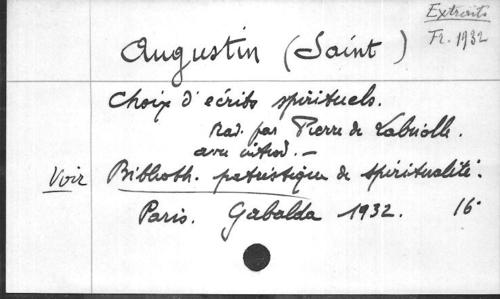 Extraits
Fr. 1932
Augustin (Saint)
Choix d'écrits spirituels.
Trad. par Pierre de Labriolle.
avec introd. —
Voir Biblioth. patristique de spiritualité.
Paris. Gabalda 1932. 16°